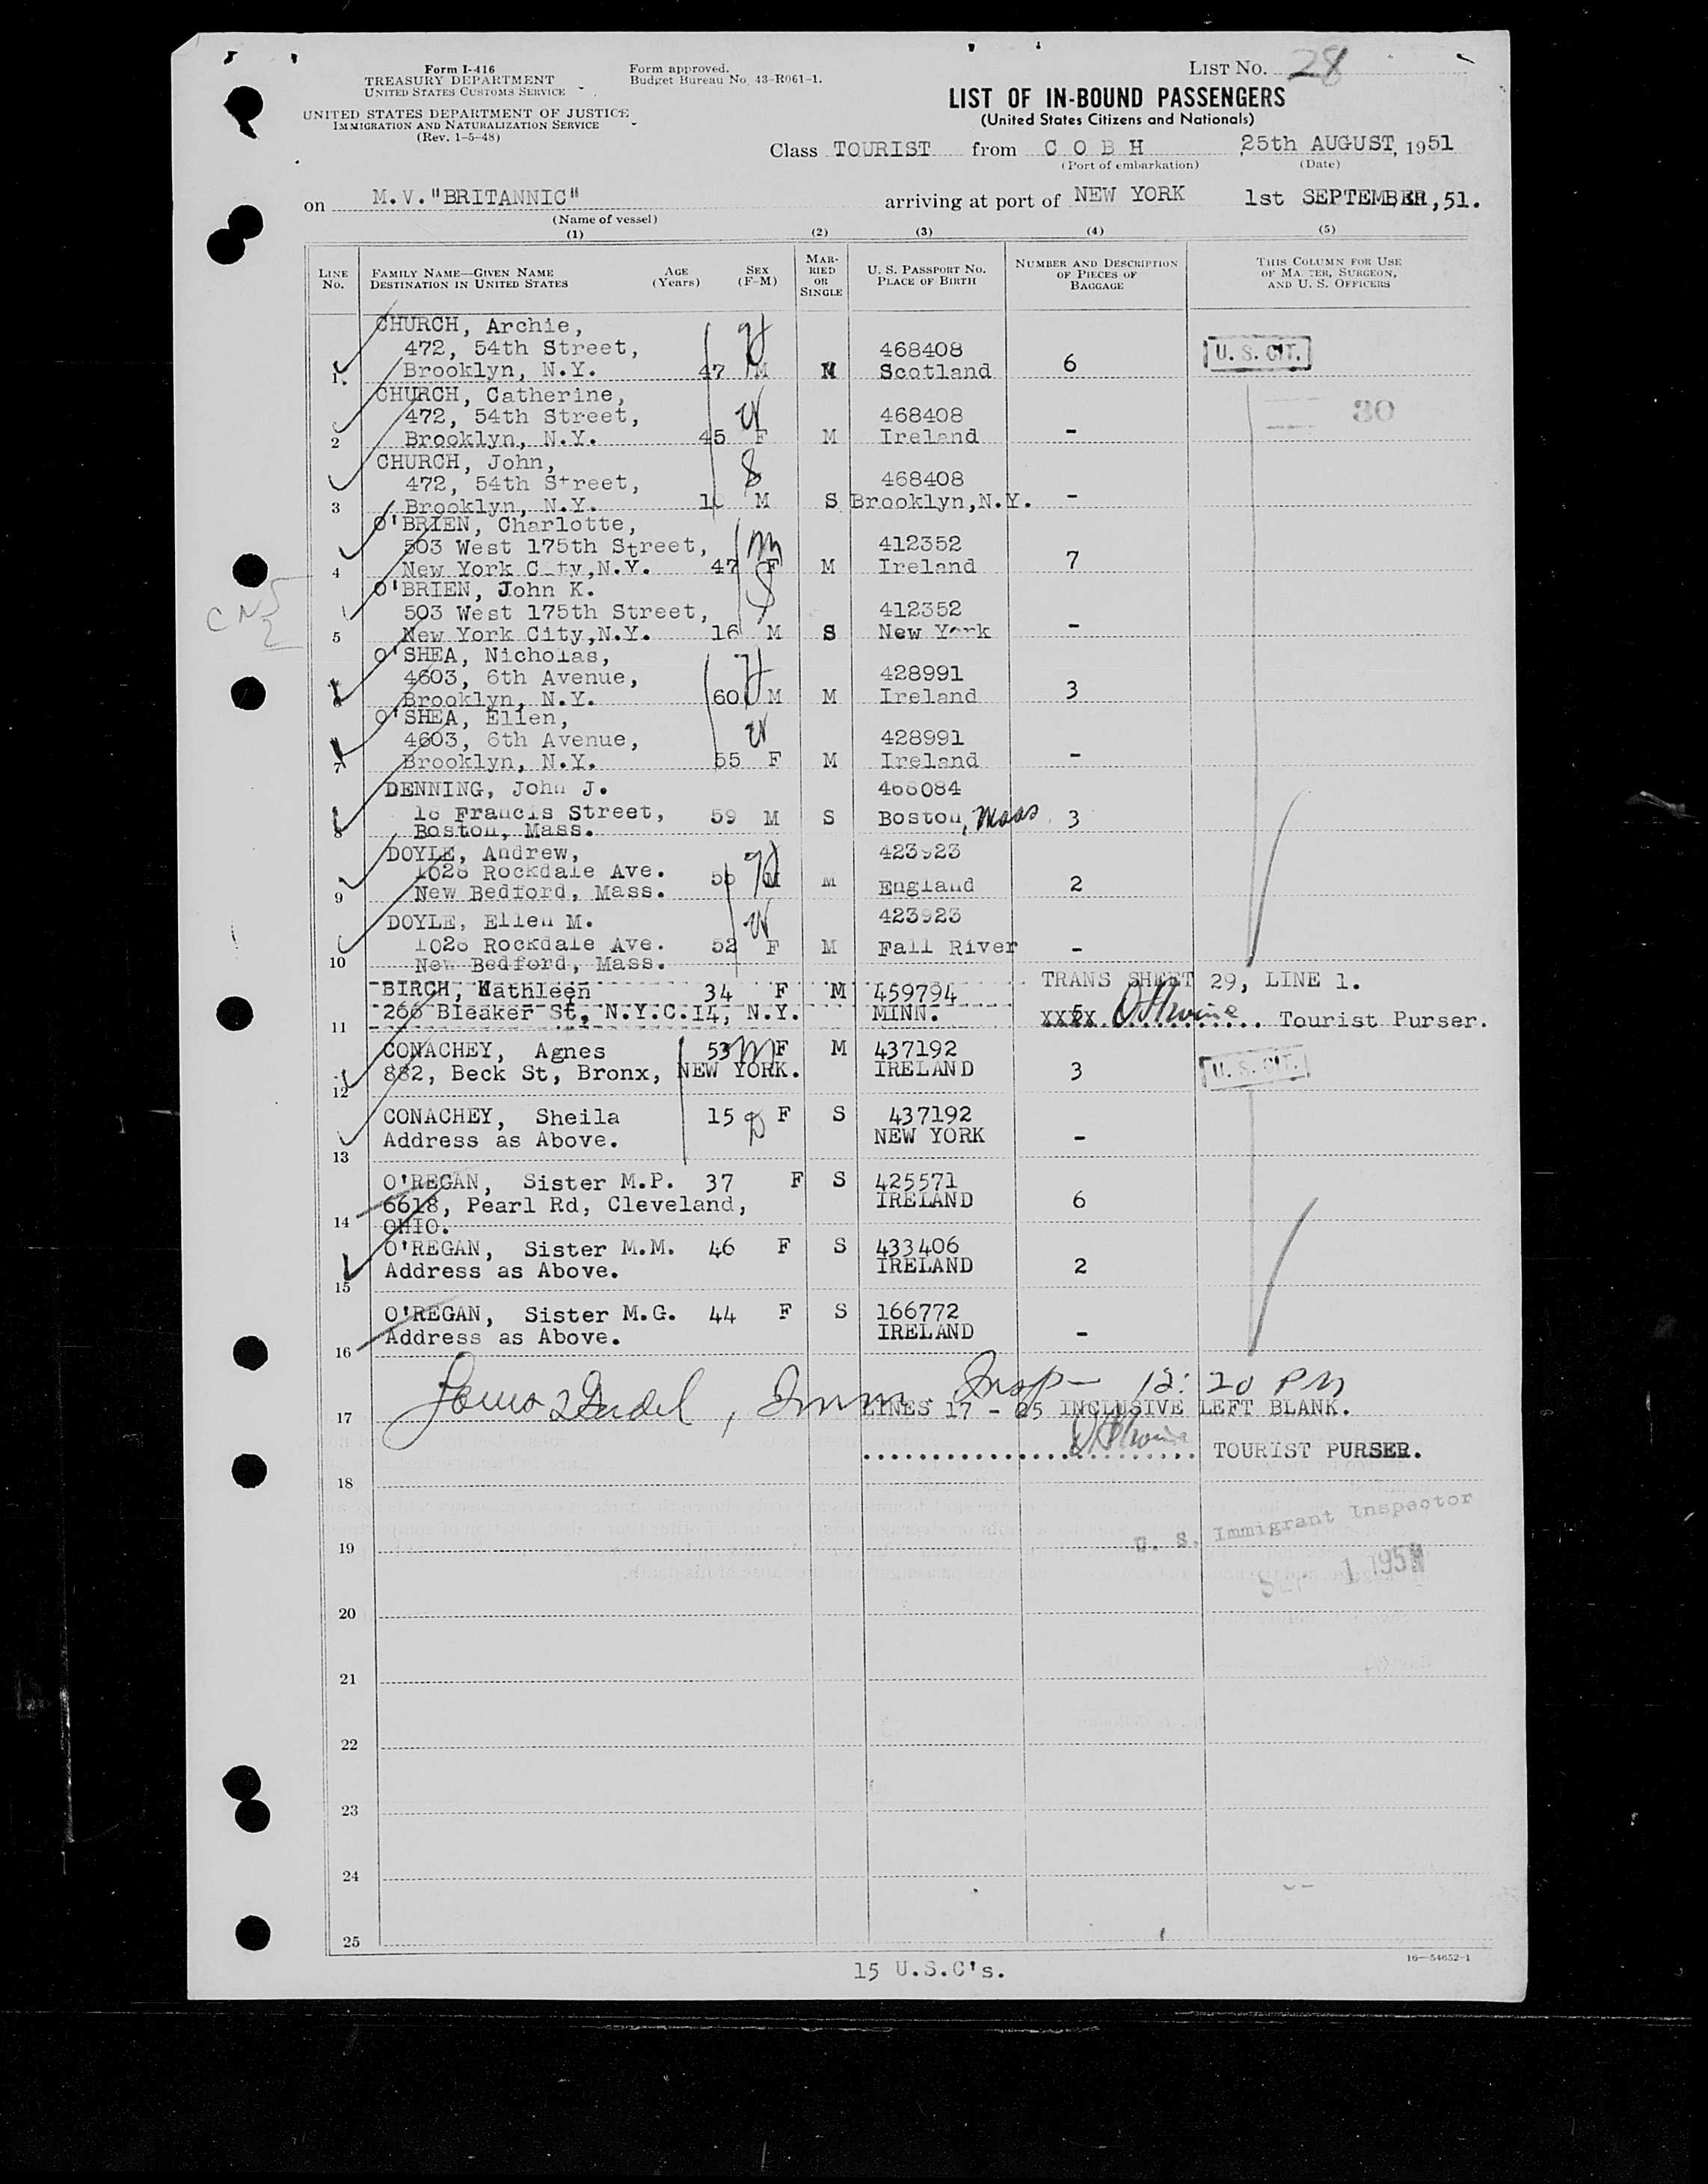 Form I-416
TREASURY DEPARTMENT
UNITED STATES CUSTOMS SERVICE
UNITED STATES DEPARTMENT OF JUSTICE
IMMIGRATION AND NATURALIZATION SERVICE
(Rev. 1-5-48)
Form approved.
Budget Bureau No. 43-R061-1.
LIST No. 28
LIST OF IN-BOUND PASSENGERS
(United States Citizens and Nationals)
Class TOURIST from C O B H 25th AUGUST, 1951
(Port of embarkation) (Date)
on M.V."BRITANNIC" arriving at port of NEW YORK 1st SEPTEMBER, 51.
(Name of vessel)
(1) (2) (3) (4) (5)
LINE No. FAMILY NAME—GIVEN NAME DESTINATION IN UNITED STATES AGE (Years) SEX (F-M) MARRIED OR SINGLE U. S. PASSPORT No. PLACE OF BIRTH NUMBER AND DESCRIPTION OF PIECES OF BAGGAGE THIS COLUMN FOR USE OF MASTER, SURGEON, AND U. S. OFFICERS
CHURCH, Archie,
472, 54th Street, 468408 U. S. CIT.
1. Brooklyn, N.Y. 47 M M Scotland 6
CHURCH, Catherine,
472, 54th Street, 468408 30
2 Brooklyn, N.Y. 45 F M Ireland -
CHURCH, John,
472, 54th Street, 468408
3 Brooklyn, N.Y. M S Brooklyn,N.Y. -
O'BRIEN, Charlotte,
503 West 175th Street, 412352
4 New York City,N.Y. 47 F M Ireland 7
O'BRIEN, John K.
503 West 175th Street, 412352
5 New York City,N.Y. 16 M S New York -
O'SHEA, Nicholas,
4603, 6th Avenue, 428991
6 Brooklyn, N.Y. 60 M M Ireland 3
O'SHEA, Ellen,
4603, 6th Avenue, 428991
7 Brooklyn, N.Y. 55 F M Ireland -
DENNING, John J. 468084
18 Francis Street, 59 M S Boston, Mass. 3
8 Boston, Mass.
DOYLE, Andrew, 423923
1028 Rockdale Ave. M M England 2
9 New Bedford, Mass.
DOYLE, Ellen M. 423923
1028 Rockdale Ave. 52 F M Fall River -
10 New Bedford, Mass.
BIRCH, Kathleen 34 F M 459794 TRANS SHEET 29, LINE 1.
11 266 Bleaker St, N.Y.C.14, N.Y. MINN. XXXX Tourist Purser.
CONACHEY, Agnes 53 F M 437192
12 882, Beck St, Bronx, NEW YORK. IRELAND 3 U. S. CIT.
CONACHEY, Sheila 15 F S 437192
13 Address as Above. NEW YORK -
O'REGAN, Sister M.P. 37 F S 425571
6618, Pearl Rd, Cleveland, IRELAND 6
14 OHIO.
O'REGAN, Sister M.M. 46 F S 433406
15 Address as Above. IRELAND 2
O'REGAN, Sister M.G. 44 F S 166772
16 Address as Above. IRELAND -
Imm. Insp 12:20 PM
17 LINES 17 - 25 INCLUSIVE LEFT BLANK.
TOURIST PURSER.
18
U. S. Immigrant Inspector
19
SEP 1 1951
20
21
22
23
24
25
16—54652-1
15 U.S.C's.